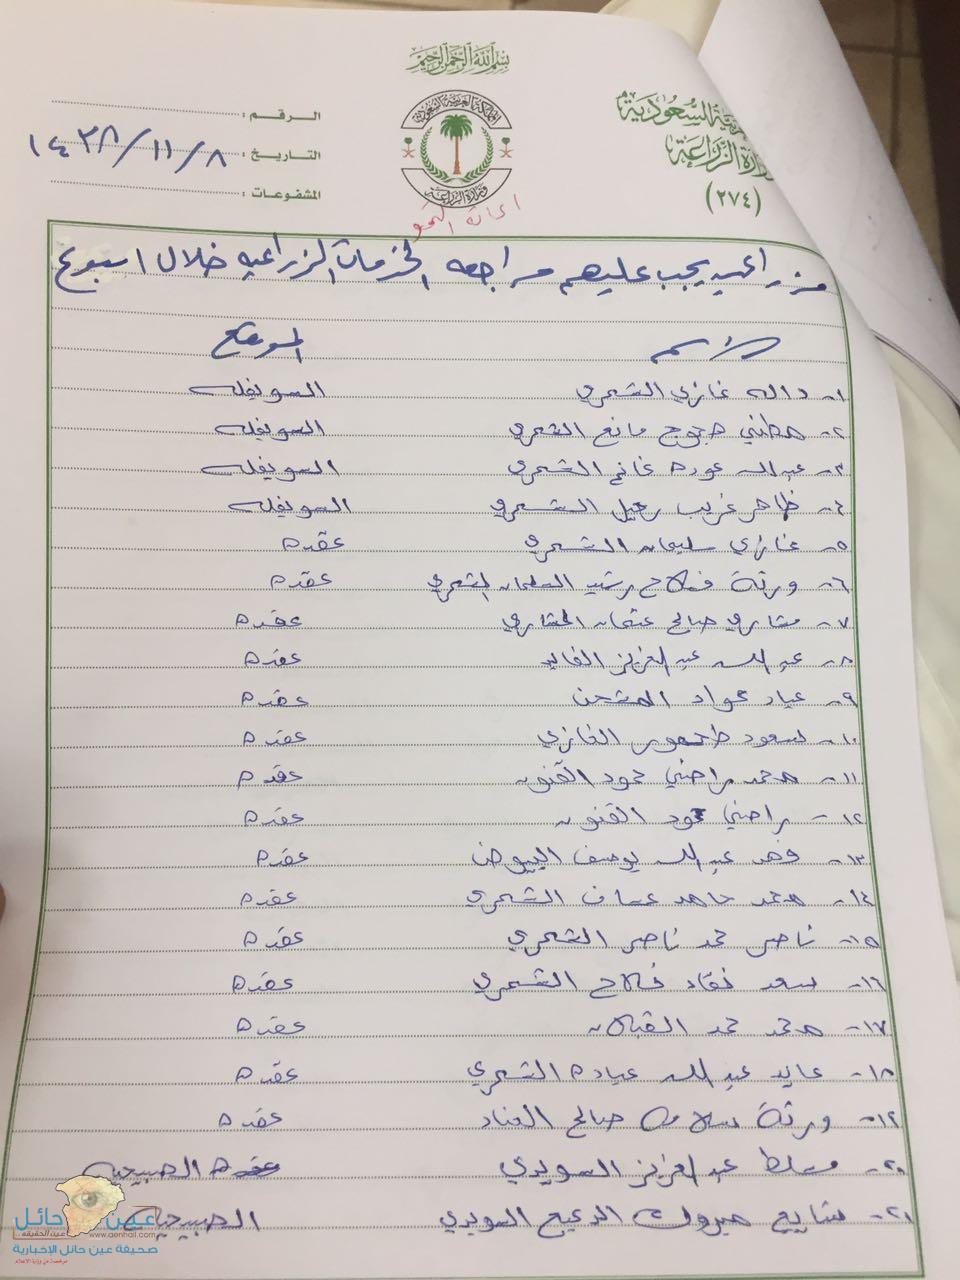 بسم الله الرحمن الرحيم
ية السعودية
وزارة الزراعة
(٢٧٤)
المملكة العربية السعودية
وزارة الزراعة
الرقم :
التاريخ : ١٤٣٨/١١/٨
المشفوعات :
اعانة
مزارعين يجب عليهم مراجعه الخدمات الزراعيه خلال اسبوع
الاسم الموقع
١- داله غازي الشمري السويفله
٢- مطني حجوج مانع الشمري السويفله
٣- عبدالله عوده غانم الشمري السويفله
٤- ظاهر غريب رحيل الشمري السويفله
٥- غازي سليمان الشمري عقده
٦- ورثة فلاح رشيد السلمان الشمري عقده
٧- مشاري صالح عثمان المشاري عقده
٨- عبدالله عبدالعزيز الفايد عقده
٩- عياد عواد المشحن عقده
١٠- سعود الغازي عقده
١١- محمد راضي حمود القنون عقده
١٢- راضي حمود القنون عقده
١٣- فهد عبدالله يوسف البيوض عقده
١٤- محمد حامد عساف الشمري عقده
١٥- ناصر حمد ناصر الشمري عقده
١٦- سعد نقاد فلاح الشمري عقده
١٧- محمد حمد القبلان عقده
١٨- عايد عبدالله عياده الشمري عقده
١٩- ورثة سلامه صالح العناد عقده
٢٠- مسلط عبدالعزيز السويدي الصبيحيه
٢١- شايع مبروك الدعيع السويدي الصبيحيه
عين حائل
عين الحقيقة
www.aenhail.com
صحيفة عين حائل الإخبارية
مرخصة من وزارة الاعلام